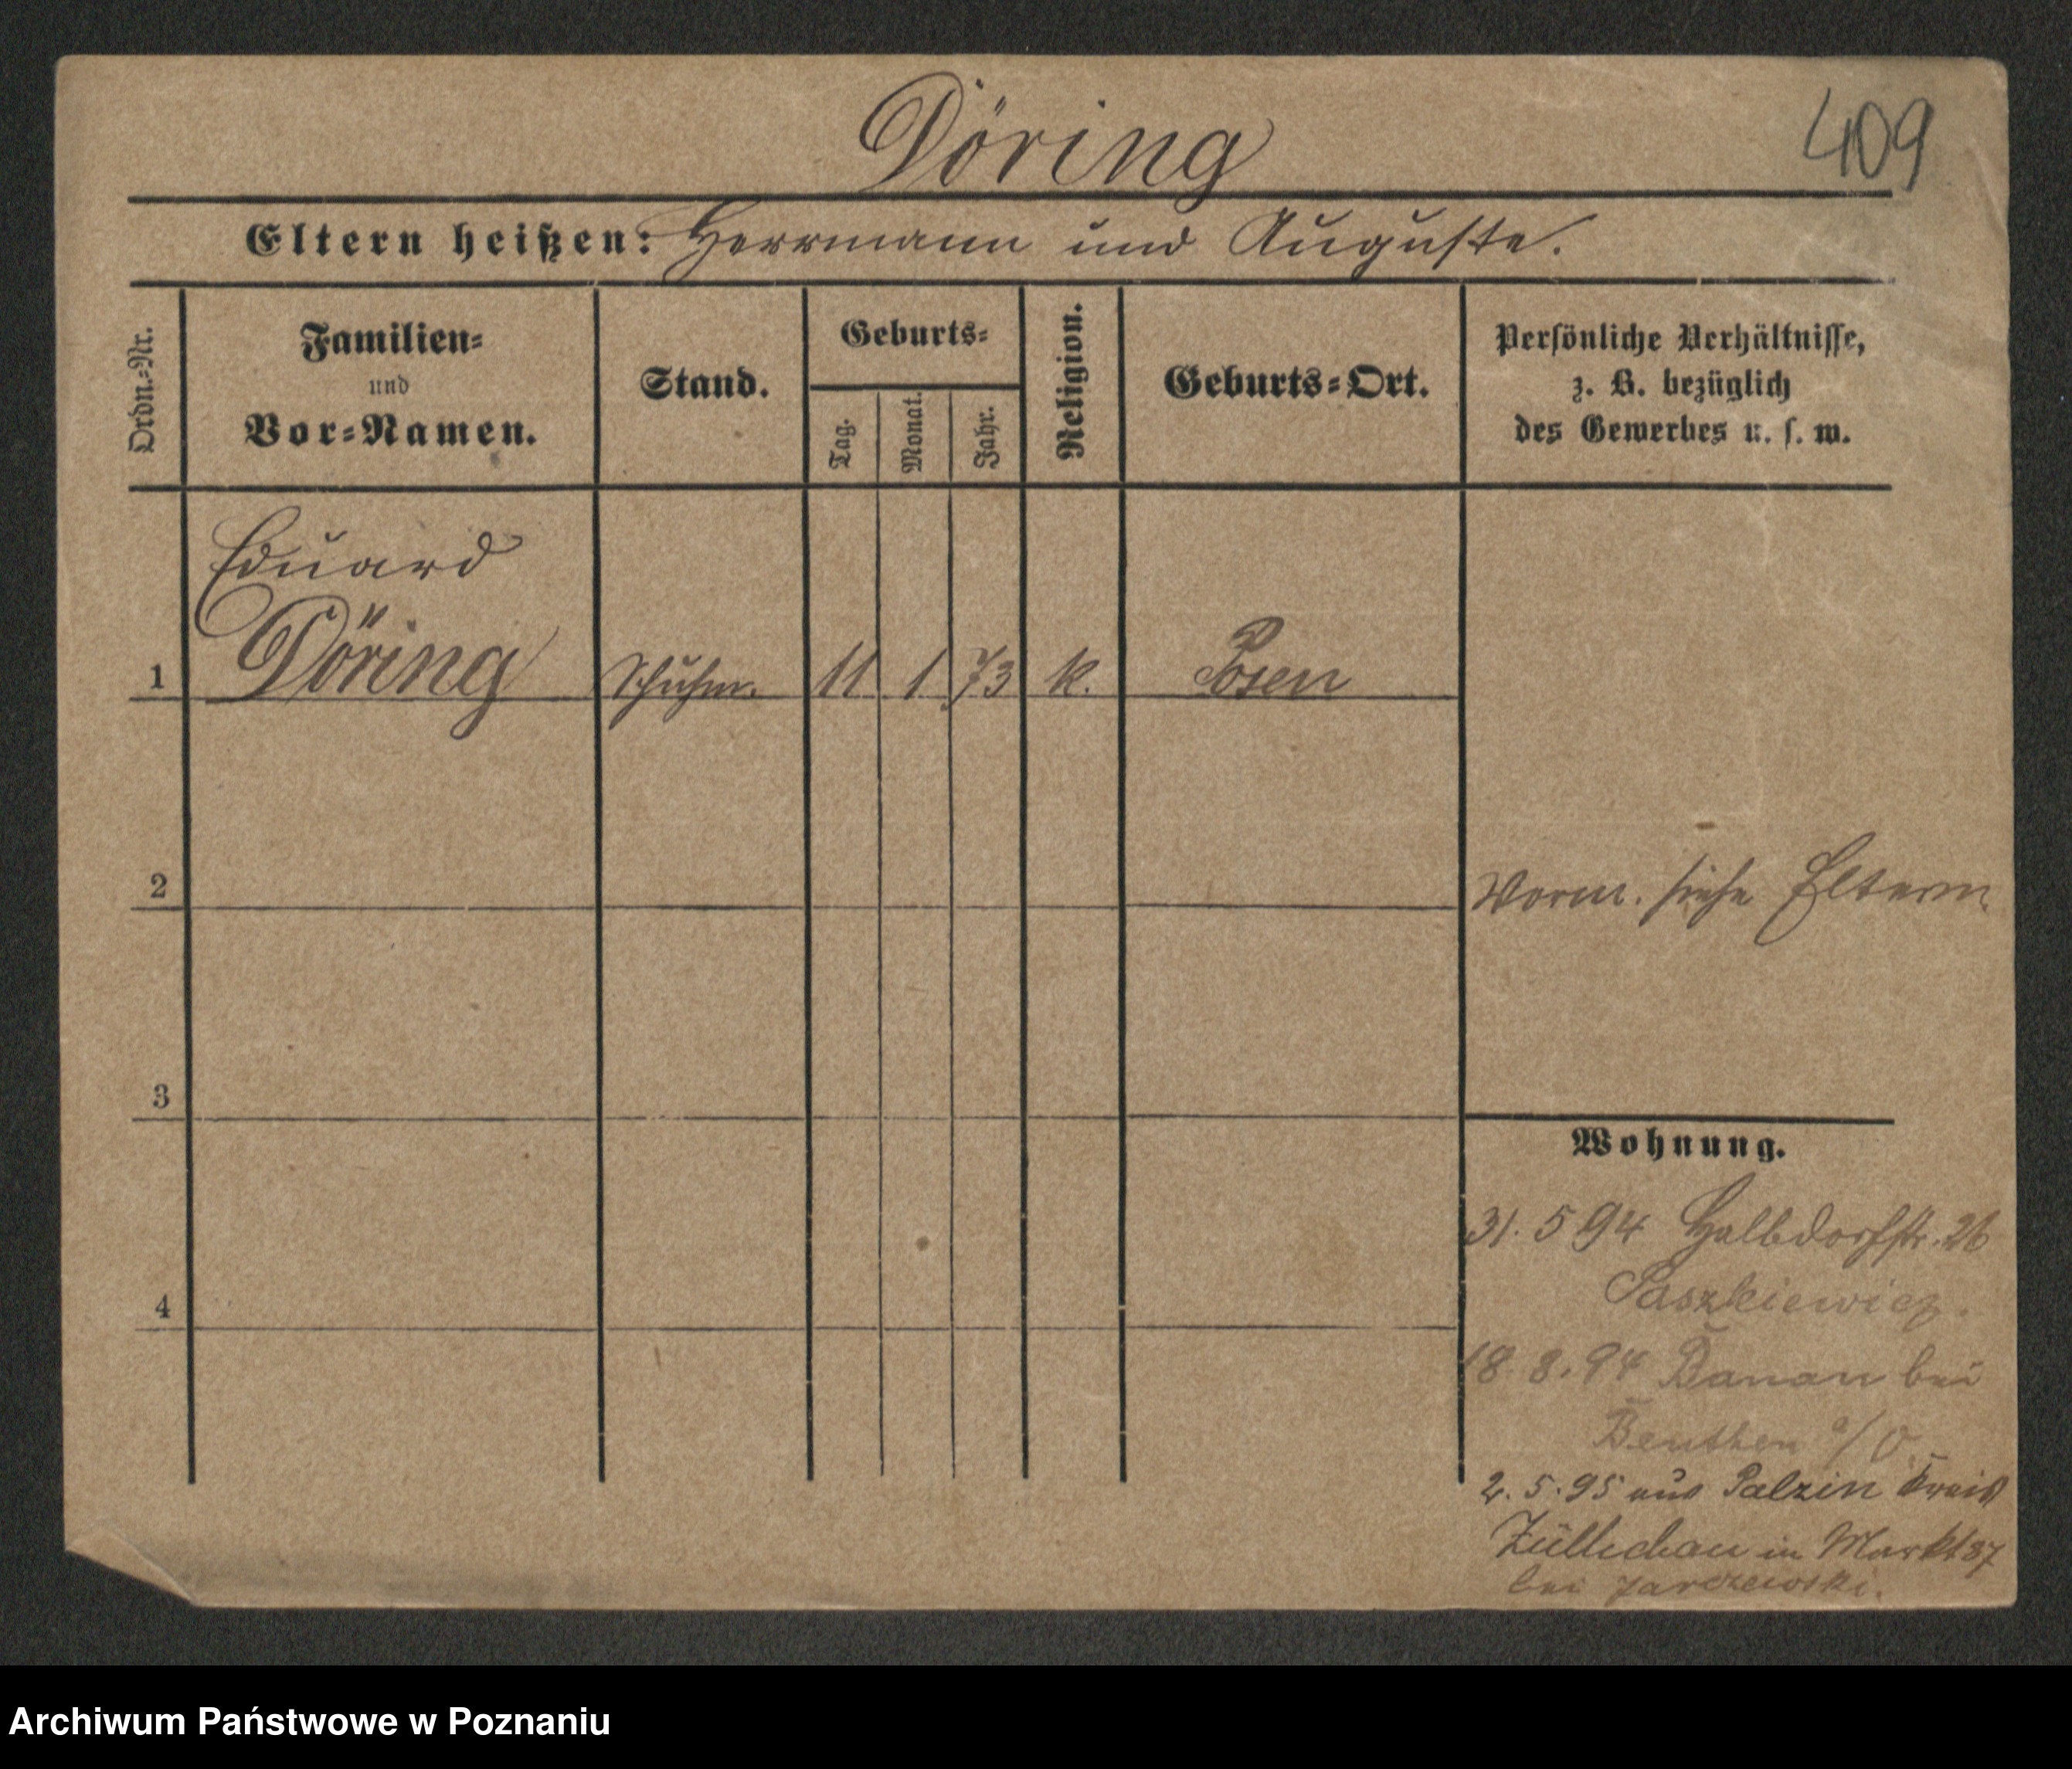 Döring
409
Eltern heißen: Herrmann und Auguste.
Ordn.-Nr.
Familien-
und
Vor-Namen.
Stand.
Geburts-
Tag.
Monat.
Jahr.
Religion.
Geburts-Ort.
Persönliche Verhältnisse,
z. B. bezüglich
des Gewerbes u. s. w.
Eduard
1 Döring Schuhm. 11 1 73 k. Posen
2
Vorm. siehe Eltern
3
Wohnung.
31. 5 94 Halbdorfstr. 26
Paszkiewicz.
4
18. 8. 94 bei
Beuthen a/O
2. 5. 95 aus Palzin Kreis
Züllichau in Markt 87
bei Jarczewski.
Archiwum Państwowe w Poznaniu